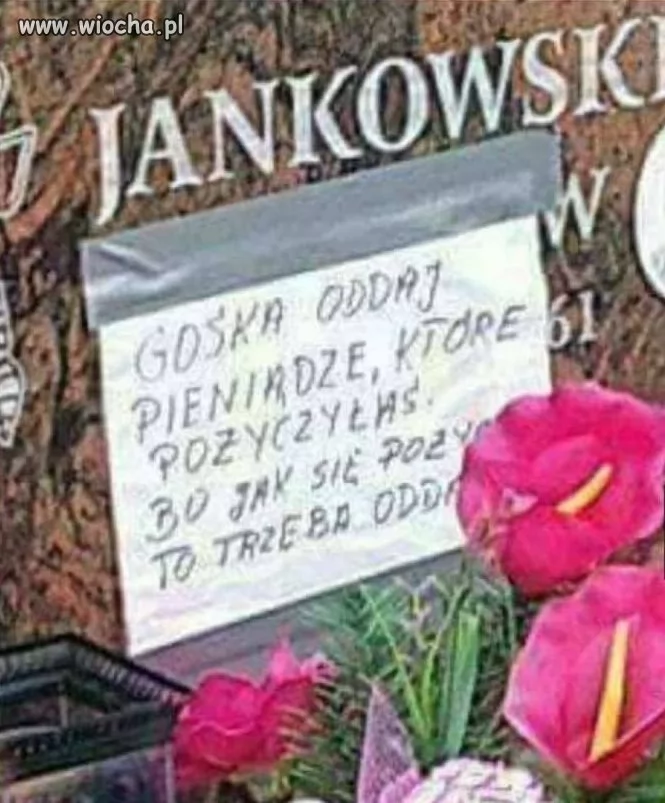 www.wiocha.pl
JANKOWSKI
W
61
GOŚKA ODDAJ
PIENIĄDZE, KTÓRE
POŻYCZYŁAŚ.
BO JAK SIĘ
TO TRZEBA